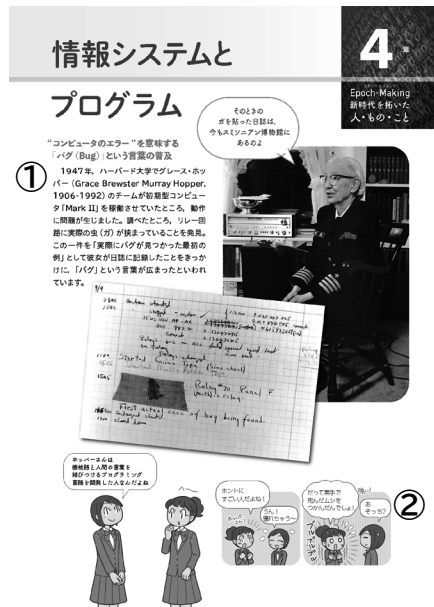 情報システムと
プログラム
4章
Epoch-Making
新時代を拓いた
人・もの・こと
そのときの
ガを貼った日誌は，
今もスミソニアン博物館に
あるのよ
“コンピュータのエラー”を意味する
「バグ（Bug）」という言葉の普及
①
1947年，ハーバード大学でグレース・ホッ
パー（Grace Brewster Murray Hopper,
1906-1992）のチームが初期型コンピュー
タ「Mark II」を稼働させていたところ，動作
に問題が生じました。調べたところ，リレー回
路に実際の虫（ガ）が挟まっていることを発見。
この一件を「実際にバグが見つかった最初の
例」として彼女が日誌に記録したことをきっか
けに，「バグ」という言葉が広まったといわれ
ています。
9/9
Relay #70 Panel F
(moth) in relay.
First actual case of bug being found.
ホッパーさんは
機械語と人間の言葉を
結びつけるプログラミング
言語を開発した人なんだよね
へ～
ホントに
すごい人だよね！
うん！
憧れちゃう～
だって素手で
死んだムシを
つかんだんでしょ！
強い！
あ
そっち？
ブルブルブル
②